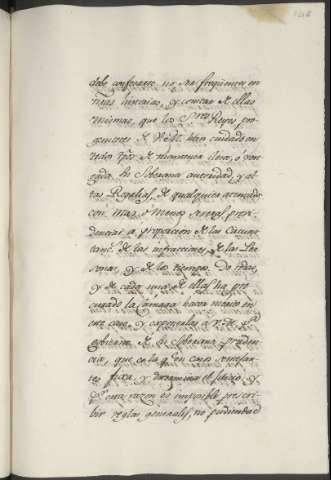 debe confesarse, no sea freqüente en
ntras historias, y conste de ellas
mismas, que los S.res Reyes, pro-
genitores de V. M. han cuidado en
todo tpo de mantener ilesa,
su Soberana autoridad, y al-
tas Regalias, de qualquiera
con mas, o menos severas provi-
dencias a proporcion de las Circuns-
tanc.s de las infracciones, de las Per-
sonas, y de los tiempos. De todo,
y de cada una de ellas ha pro-
curado la Camara hacer merito en
este caso, y exponerlas a V. M.
de su Soberana pruden-
cia, que es la q.e en casos semejan-
tes fixa, y determina el juicio, y
esta razon es imposible prescri-
bir reglas generales, no pudiendo